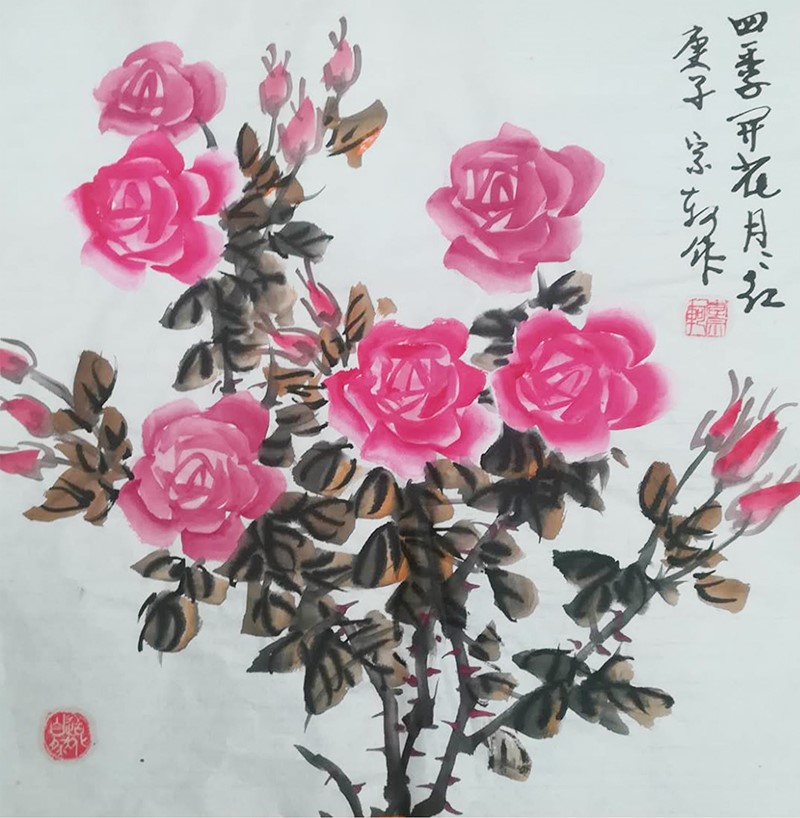 四季开花月〻红
庚子 宗轲作